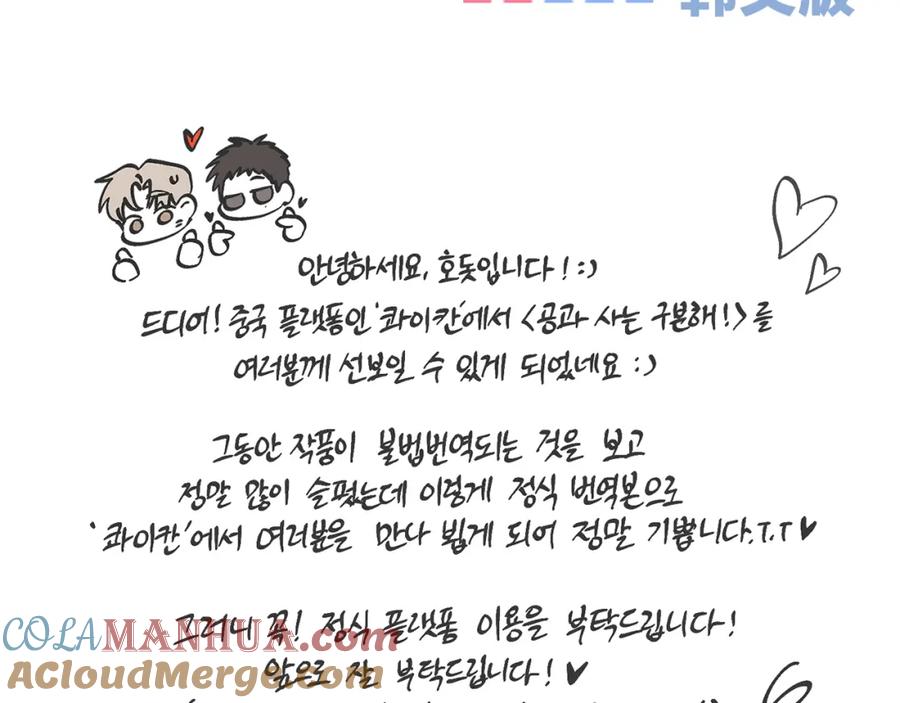 韩文版
안녕하세요, 호돗입니다! :)
드디어! 중국 플랫폼인 '콰이칸'에서 <공과 사는 구분해!>를
여러분께 선보일 수 있게 되었네요 :)
그동안 작품이 불법번역되는 것을 보고
정말 많이 슬펐는데 이렇게 정식 번역본으로
'콰이칸'에서 여러분을 만나 뵙게 되어 정말 기쁩니다.T.T♥
그러니 꼭! 정식 플랫폼 이용을 부탁드립니다!
COLAMANHUA.com
앞으로 잘 부탁드립니다! ♥
ACloudMerge.com